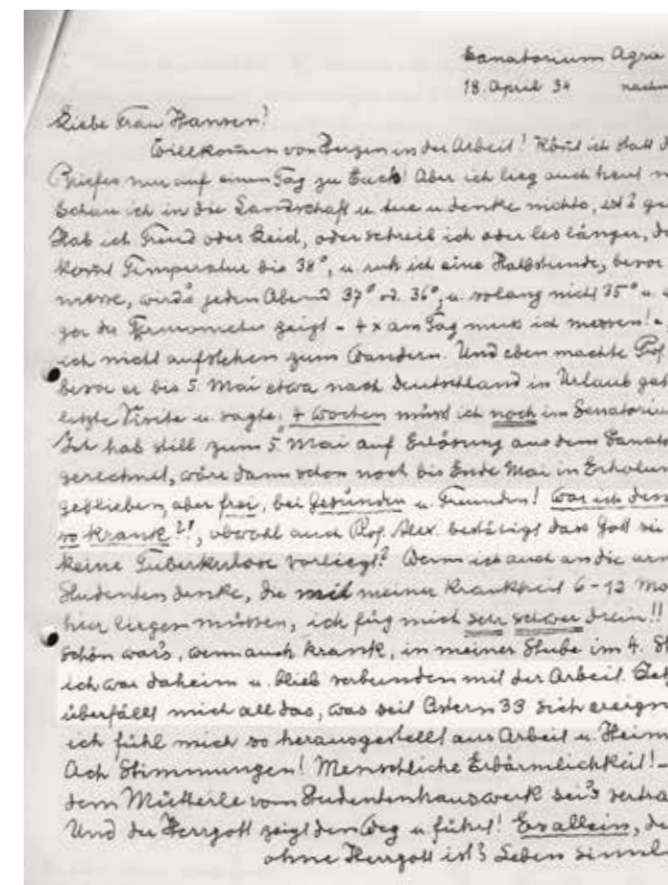 Sanatorium Agra
18. April 34 nachm
Liebe Frau Hansen!
Willkomen von Bergen in der Arbeit! Könnt ich statt d
Briefes nur auf einen Tag zu Euch! Aber ich lieg auch heut n
Schau ich in die Landschaft u. tue u denke nichts, ist's ge
Hab ich Freud oder Leid, oder schreib ich oder les länger, da
komt Temperatur bis 38°, u. ruh ich eine Halbstunde, bevor
messe, wird's jeden Abend 37° od. 36°, u. solang nicht 35° u.
gar der Thermometer zeigt - 4 x am Tag muss ich messen! -
ich nicht aufstehen zum Wandern. Und eben machte Prof.
bevor er bis 5. Mai etwa nach Deutschland in Urlaub geht
letzte Visite u. sagte: 4 Wochen müsst ich noch im Sanatorium
Ich hab still zum 5. Mai auf Erlösung aus dem Sanato
gerechnet, wäre dann schon noch bis Ende Mai in Erholun
geblieben, aber frei, bei Gesunden u. Freunden! War ich denn
so krank?!, obwohl auch Prof. Alex. bestätigt dass Gott sei
keine Tuberkulose vorliegt? Wenn ich auch an die arm
Studenten denke, die mit meiner Krankheit 6-12 Mo
hier liegen müssen, ich füg mich sehr schwer drein!!
Schön war's, wenn auch krank, in meiner Stube im 4. St
ich war daheim u. blieb verbunden mit der Arbeit. Jet
überfällt mich all das, was seit Ostern 33 sich ereign
ich fühl mich so herausgestellt aus Arbeit u. Heim
Ach Stimmungen! Menschliche Erbärmlichkeit! -
dem Mütterle vom Studentenhauswerk sei's vertra
Und der Herrgott zeigt den Weg u führt! Er allein, de
ohne Herrgott ist's Leben sinnl